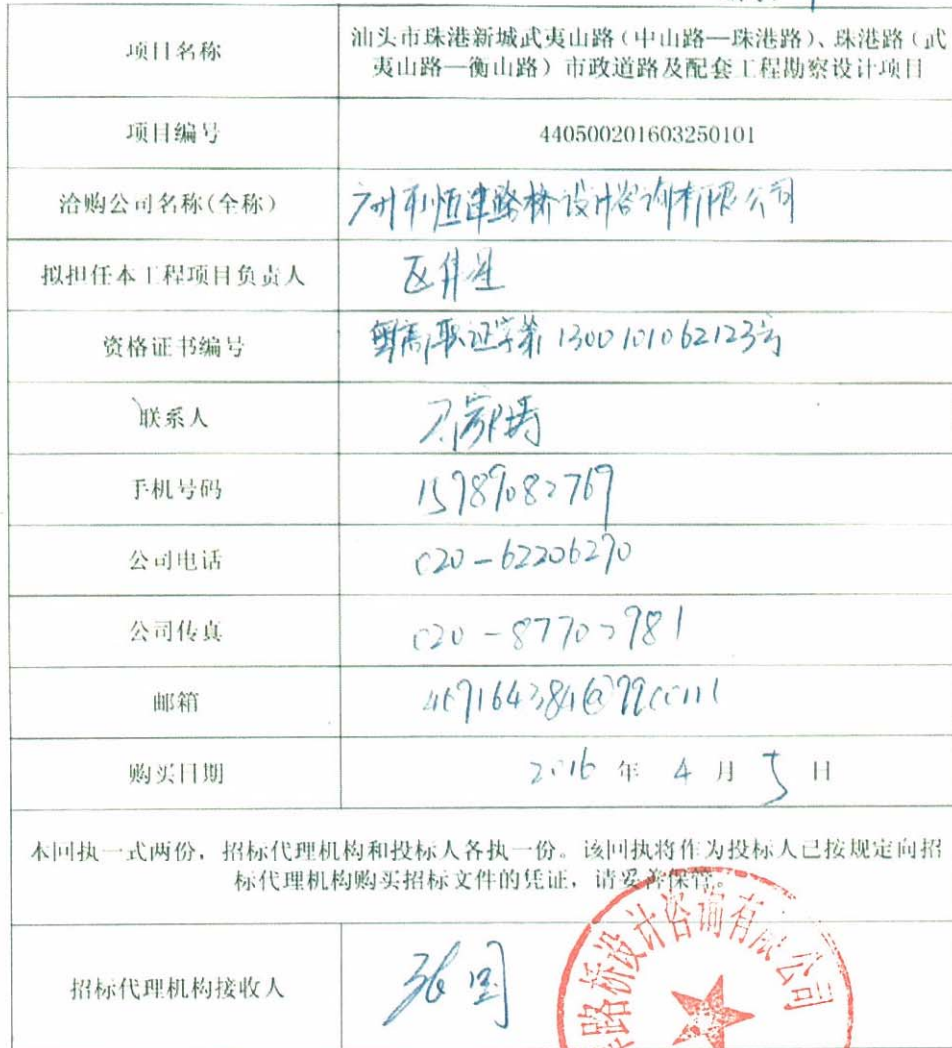 项目名称
汕头市珠港新城武夷山路（中山路—珠港路）、珠港路（武
夷山路—衡山路）市政道路及配套工程勘察设计项目
项目编号
440500201603250101
洽购公司名称(全称)
广州市恒建路桥设计咨询有限公司
拟担任本工程项目负责人
资格证书编号
粤高职证字第1300101062123号
联系人
手机号码
15989082769
公司电话
020-62206270
公司传真
邮箱
购买日期
2016 年 4 月 5 日
本回执一式两份，招标代理机构和投标人各执一份。该回执将作为投标人已按规定向招
标代理机构购买招标文件的凭证，请妥善保管。
招标代理机构接收人
路桥设计咨询有限公司